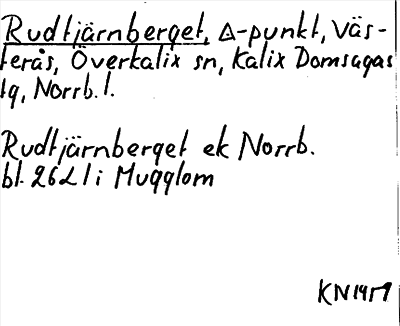 Rudtjärnberget, △-punkt, Väs-
terås, Överkalix sn, Kalix Domsagas
tg, Norrb. l.
Rudtjärnberget ek Norrb.
bl. 26L 1i Mugglom
KN